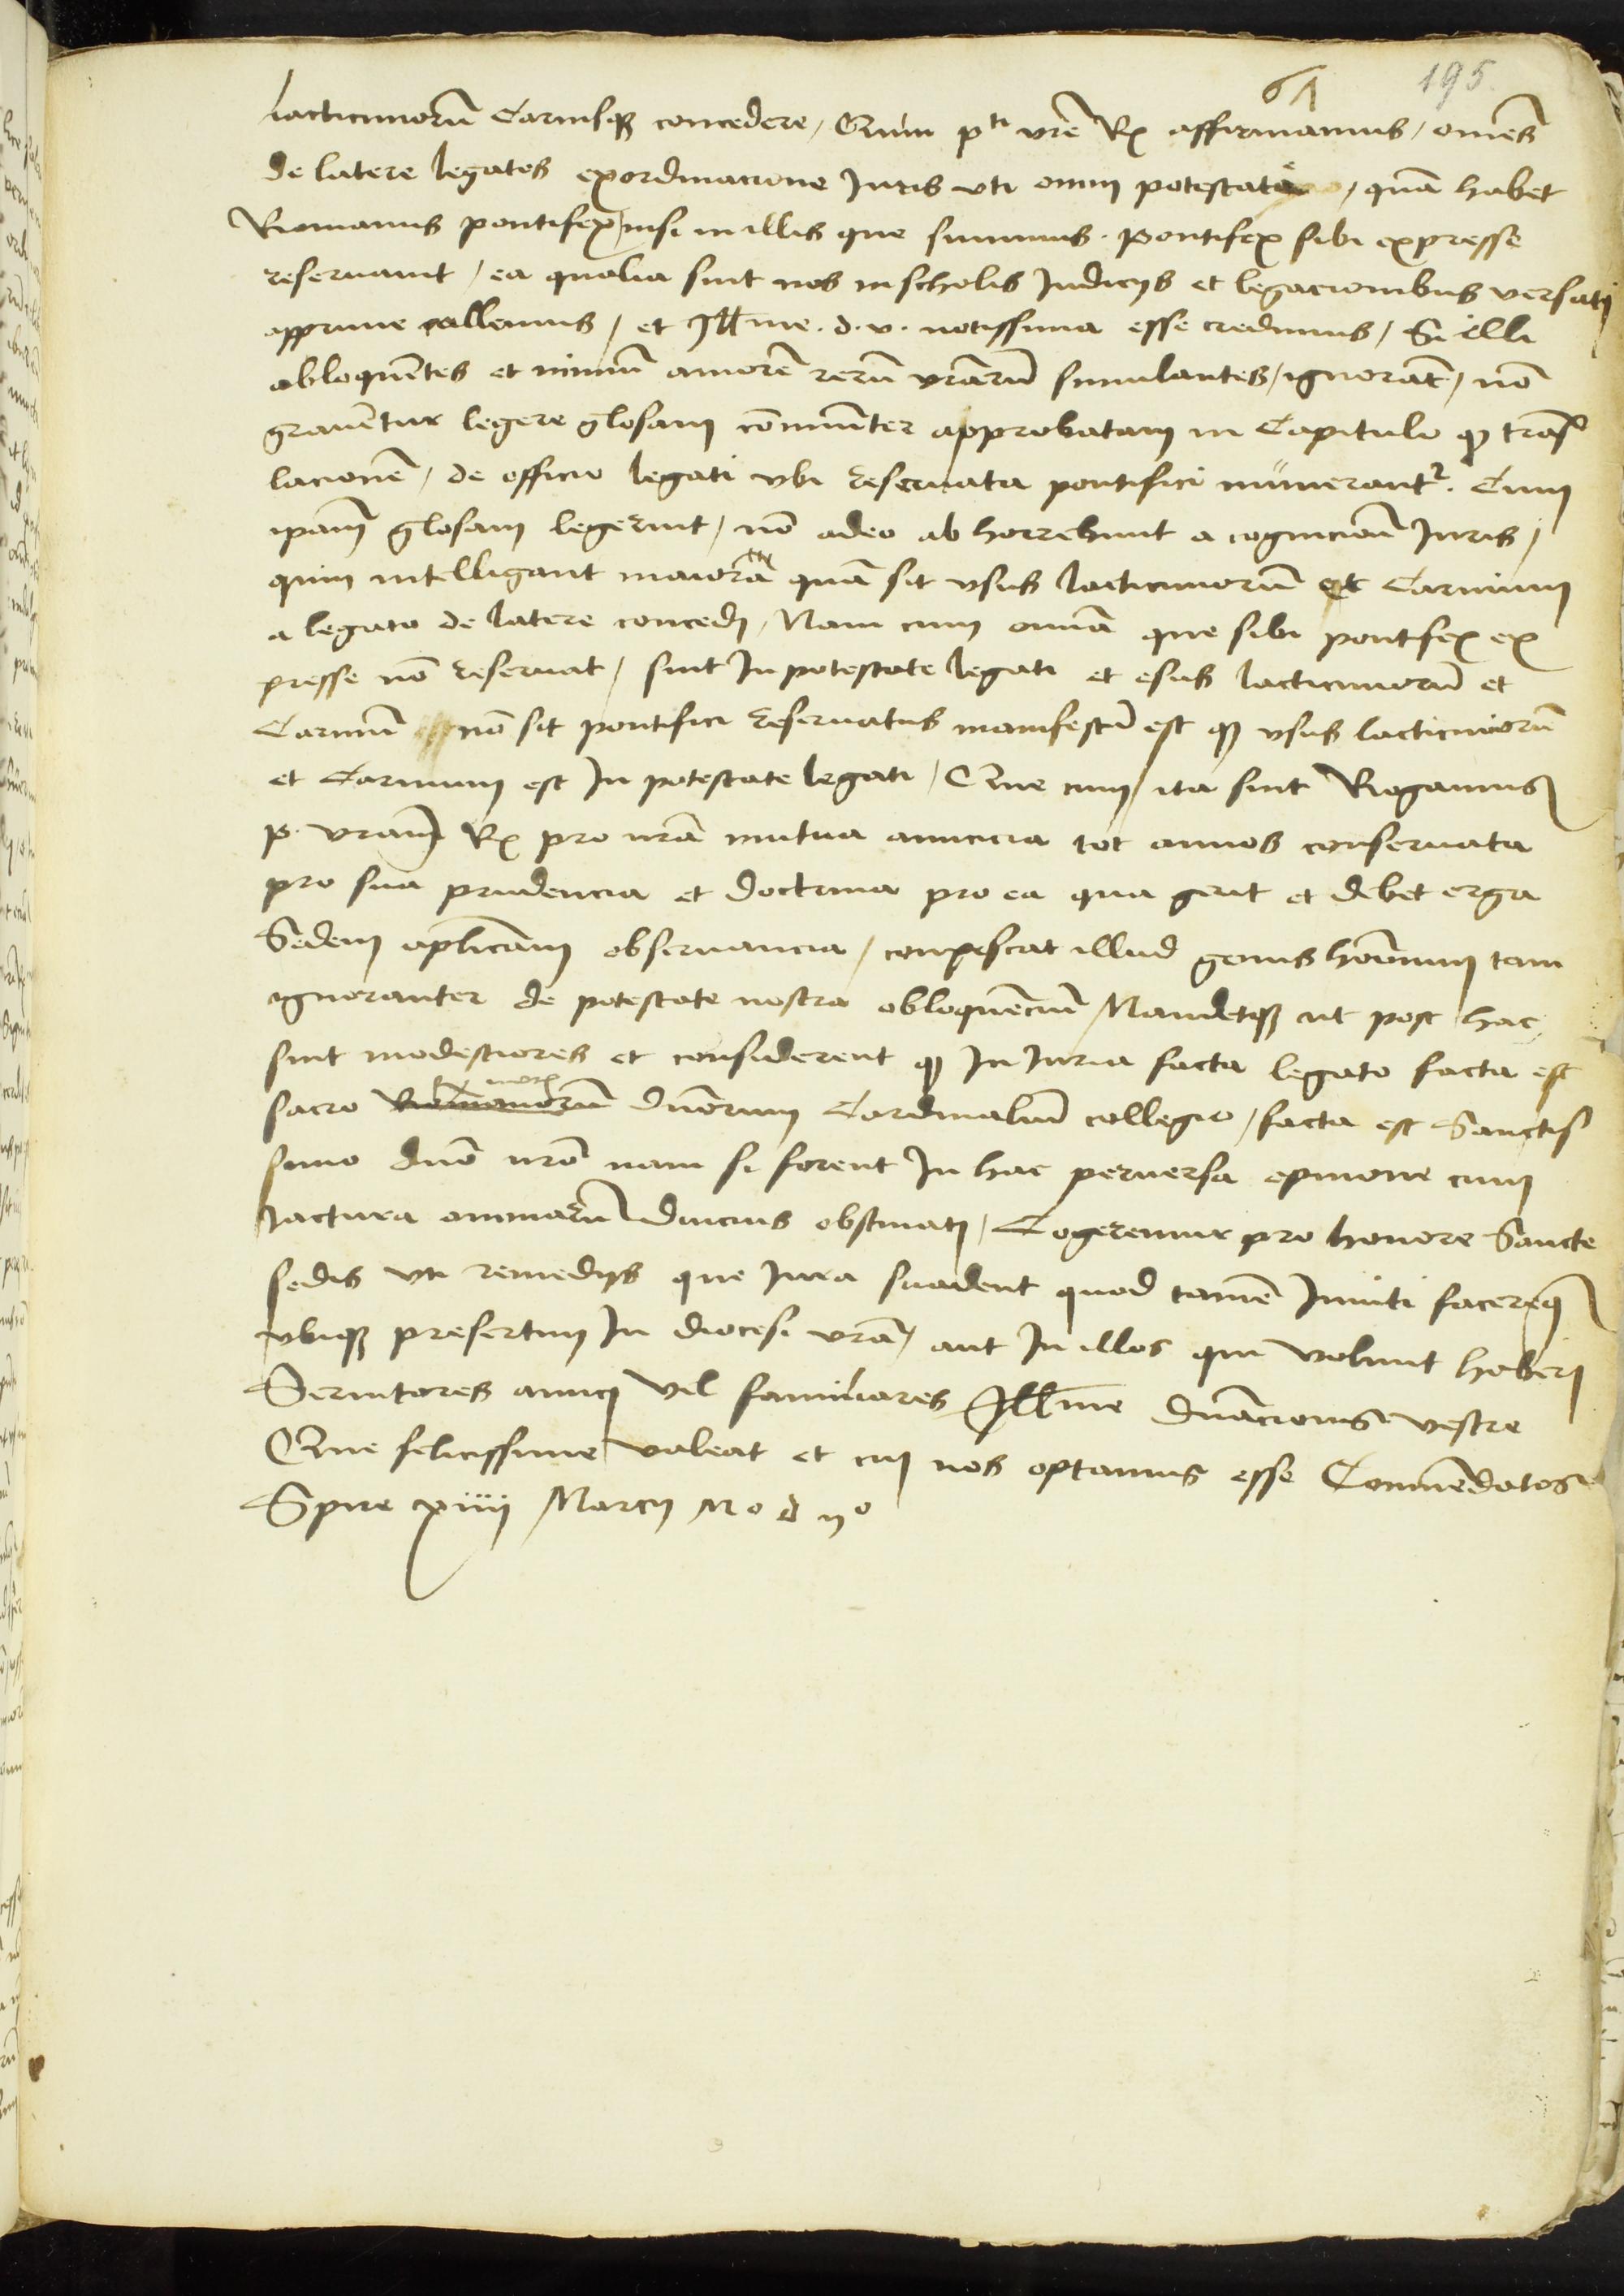 61 195
lacticinioru̅ Carnisqꝫ concedere / Enim pti vr̅e Rx affirmamus / om̅es
de latere legatos exordinacione Juris vti omni potestate / qua̅ habet
Romanus pontifex / nisi in illis que summus . pontifex sibi expresse
reseruauit / ea qualia sint nos in scholis Judicijs et legacionibus versati
apprime callemus / et Ill̅me . d . v . notissima esse credimus / Si illi
obloque̅tes et nimiu̅ amore̅ reru̅ vr̅aru̅ simulantes / ignora̅t / no̅
graue̅tur legere glosam co̅mu̅iter approbatam in Capitulo ꝙ tra̅s
lacione̅ / de officio legati vbi reseruata pontifici numerant̉ . Cum
ip̅am glosam legerint / no̅ adeo ab horrebunt a cognicio̅e Juris /
quin intelligant maiora qua̅ sit vsus lacticinioru̅ et Carnium
a legato de latere concedi / Nam cum om̅ia que sibi pontifex ex
presse no̅ reseruat / sint In potestate legati et esus lacticinioru̅ et
Carniu̅ no̅ sit pontifici reseruatus manifestu̅ est ꝙ vsus lacticinioru̅
et Carnium est In potestate legati / Que cum ita sint Rogamus
p . vram̅ Rx pro nr̅a mutua amicicia tot annos conseruata
pro sua prudencia et doctrina pro ea qua gerit et debet erga
Sedem ap̅licam obseruancia / conpescat illud genus ho̅i̅num tam
ignoranter de potestate nostra obloque̅ciu̅ Mandetqꝫ ut post hac
sint modestiores et considerent ꝙ In Juria facta legato facta est
sacro Romanoru̅ dn̅orum Cardinaliu̅ collegio / facta est Sanctis
simo dn̅o nr̅o nam si forent In hac peruersa opinione cum
Jactura animaru̅ diucius obstinati / Cogeremur pro honore Sancte
sedis vti remedijs que Jura suadent quod tame̅ Inuiti facere̅qꝫ
vbiqꝫ presertim In diocesi vr̅a / aut In illos qui volunt haberi
Seruitores amici vel familiares Ill̅me dn̅acionis vestre
Que felicissime valeat et cui nos optamus esse Comme̅datos
Spire xiiij Marcij M o d ijo